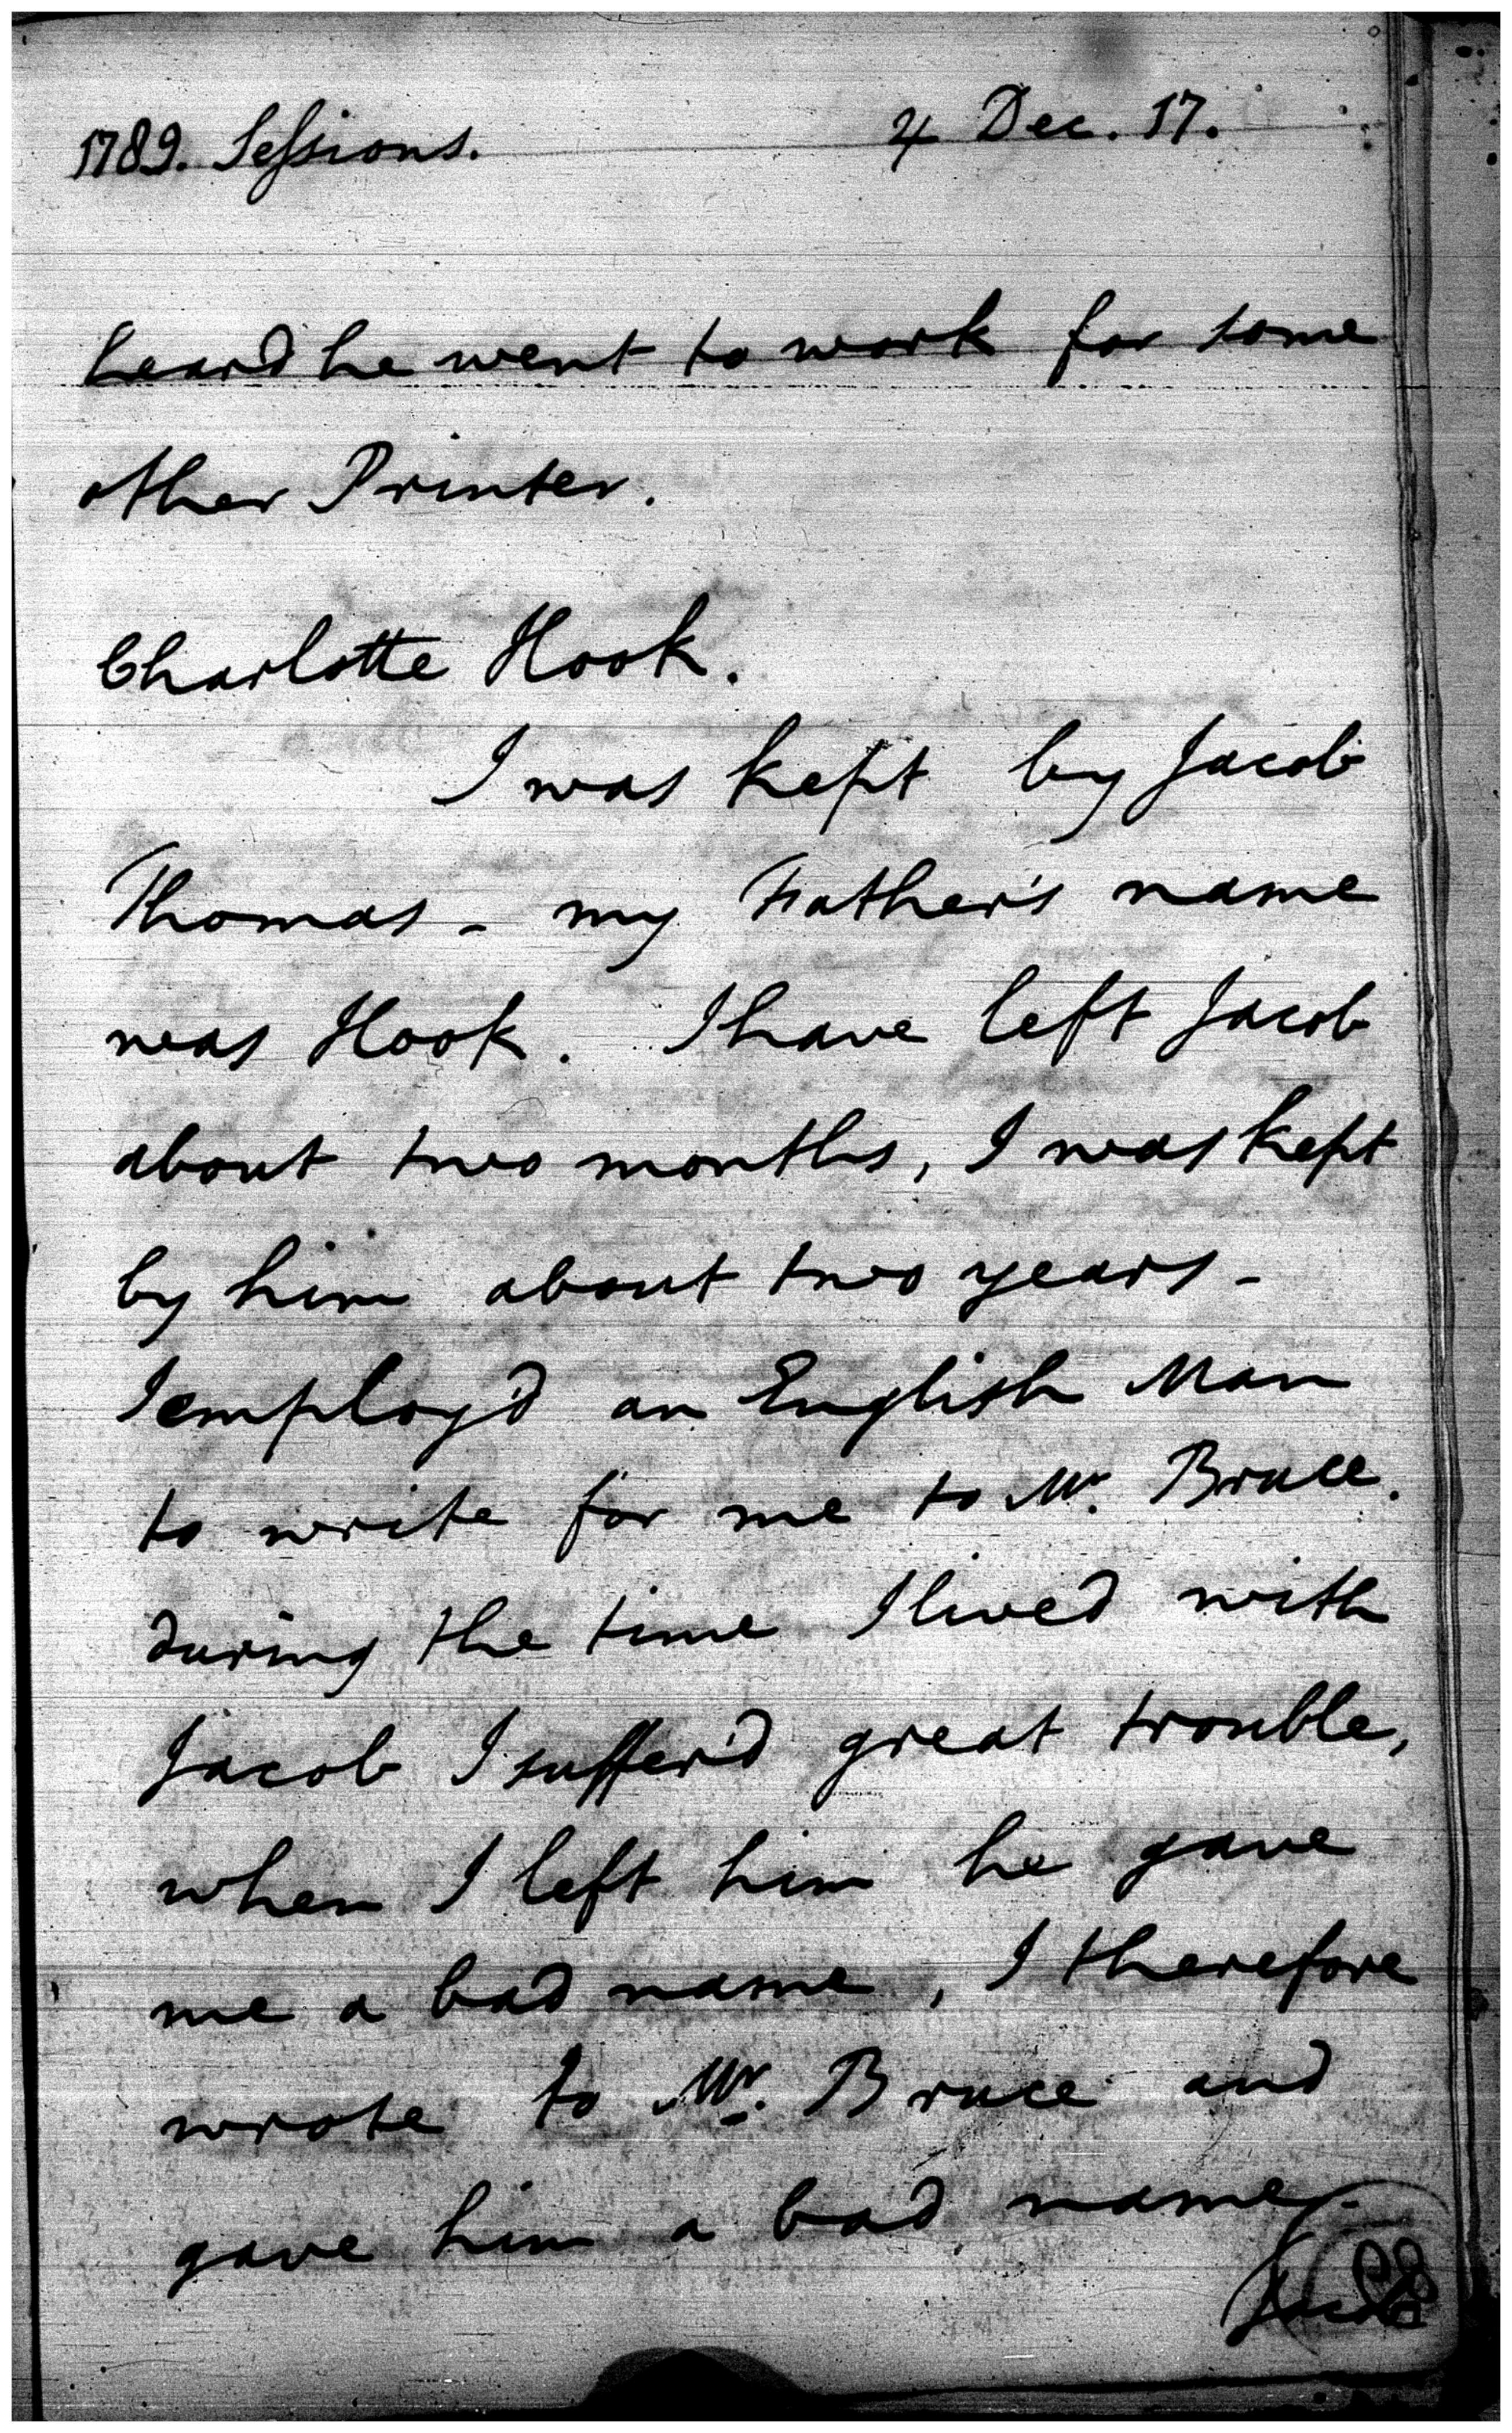 1789. Sessions. 4 Dec. 17.
heard he went to work for some
other Printer.
Charlotte Hook.
I was kept by Jacob
Thomas - my Father's name
was Hook. I have left Jacob
about two months, I was kept
by him about two years -
I employ'd an English Man
to write for me to Mr. Bruce.
during the time I lived with
Jacob I suffer'd great trouble,
when I left him he gave
me a bad name, I therefore
wrote to Mr. Bruce and
gave him a bad name.
Jacob